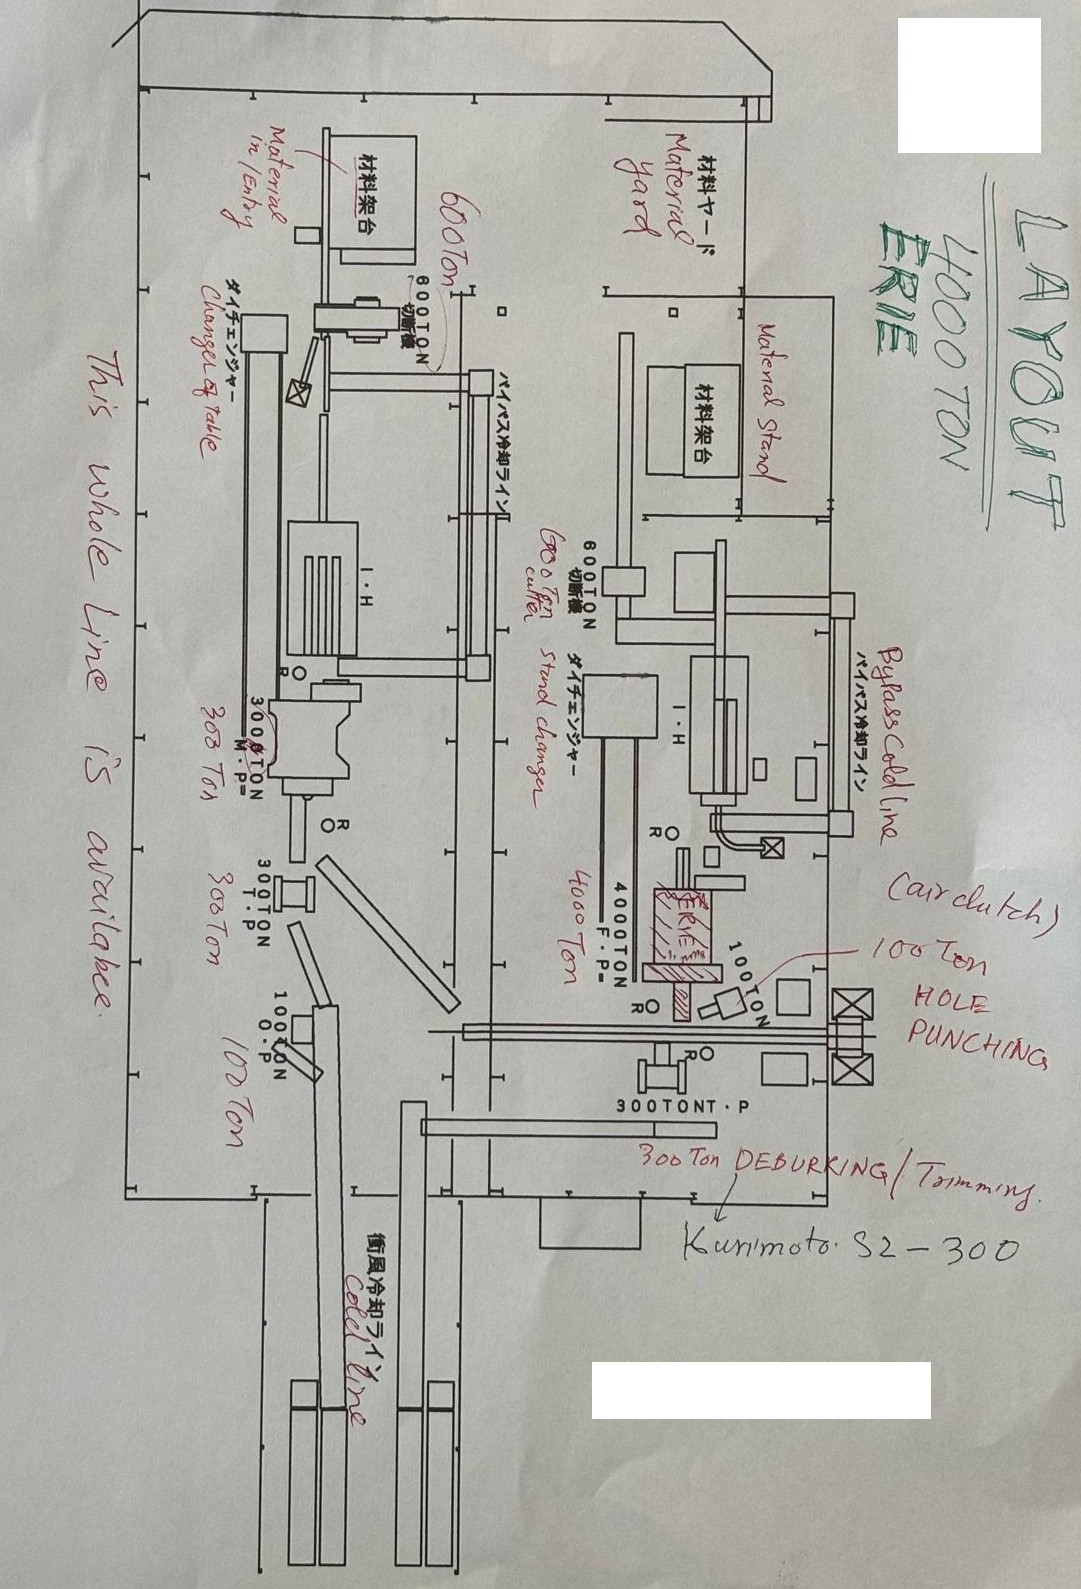 LAYOUT
4000 TON
ERIE
材料ヤード
Material
yard
Material stand
材料架台
600TON
切断機
600Ton
cutter
ダイチェンジャー
stand changer
I・H
バイパス冷却ライン
Bypass Cold line
R
4000TON
F・P=
4000 Ton
ERIE
100TON
(air clutch)
100 Ton
HOLE
PUNCHING
R
R
300TONT・P
300 Ton DEBURRING/Trimming.
Kurimoto. S2-300
Material
in/Entry
材料架台
600Ton
600TON
切断機
バイパス冷却ライン
ダイチェンジャー
Changer of table
I・H
R
3000TON
M・P=
300 Ton
R
300TON
T・P
300 Ton
100TON
O・P
100 Ton
衝風冷却ライン
Cold line
This whole Line is availabee.